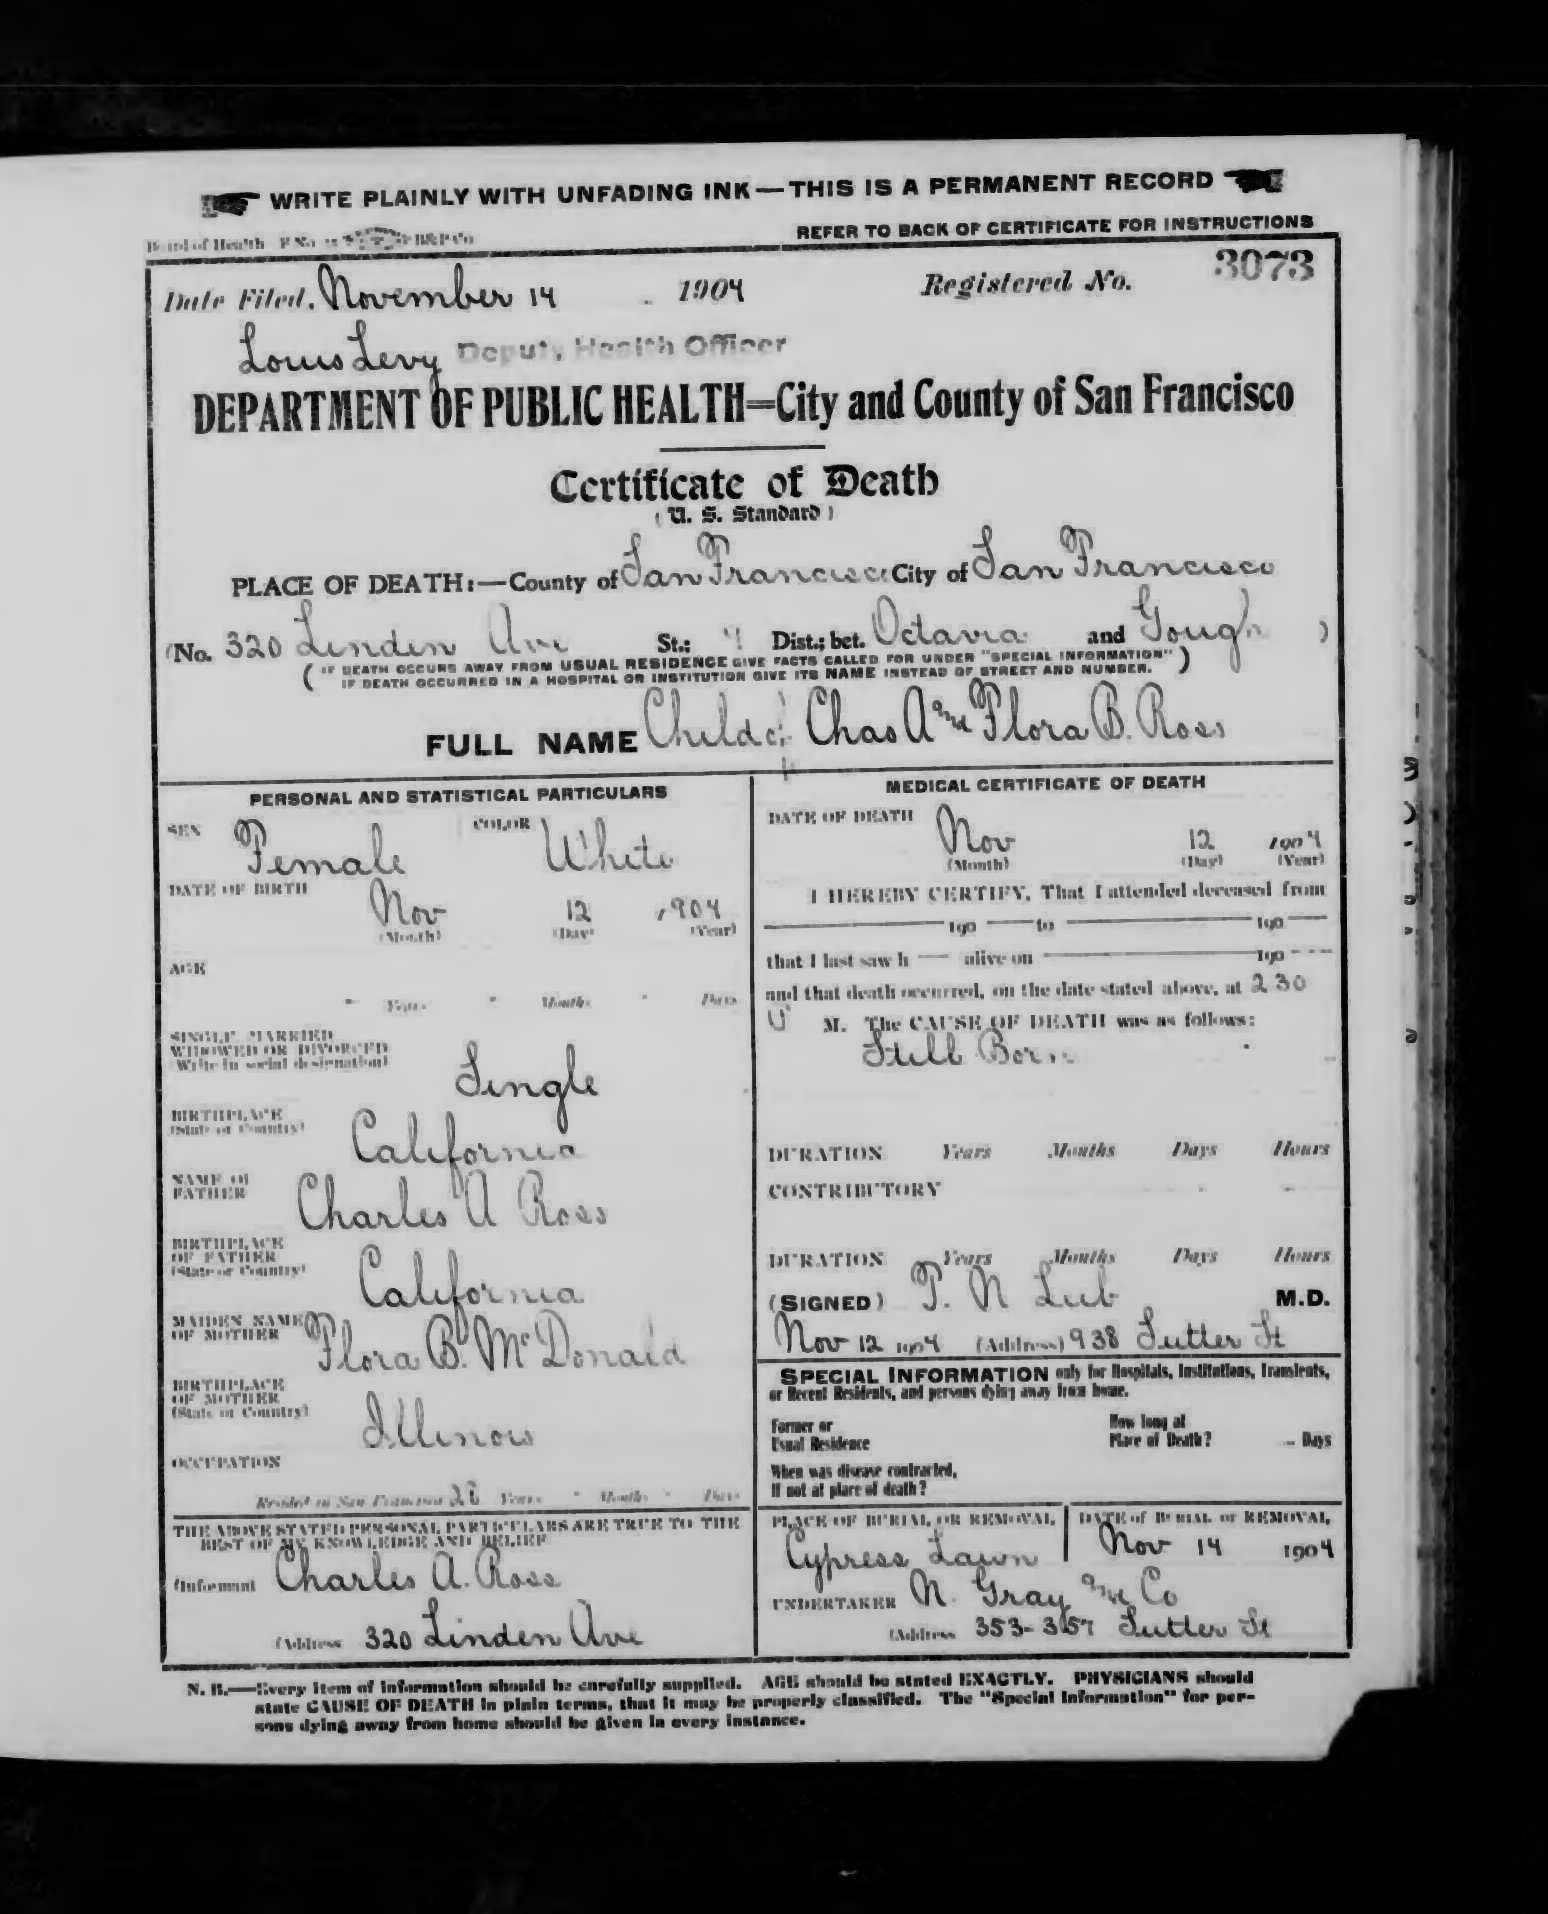 WRITE PLAINLY WITH UNFADING INK—THIS IS A PERMANENT RECORD
Board of Health F No B&P Co
REFER TO BACK OF CERTIFICATE FOR INSTRUCTIONS
Date Filed, November 14 1904 Registered No. 3073
Louis Levy Deputy Health Officer
DEPARTMENT OF PUBLIC HEALTH=City and County of San Francisco
Certificate of Death
(U. S. Standard)
PLACE OF DEATH:—County of San Francisco City of San Francisco
(No. 320 Linden Ave St.; Dist.; bet. Octavia and Gough )
( IF DEATH OCCURS AWAY FROM USUAL RESIDENCE GIVE FACTS CALLED FOR UNDER "SPECIAL INFORMATION" )
IF DEATH OCCURRED IN A HOSPITAL OR INSTITUTION GIVE ITS NAME INSTEAD OF STREET AND NUMBER.
FULL NAME Child of Chas A and Flora B. Ross
PERSONAL AND STATISTICAL PARTICULARS
SEX Female COLOR White
DATE OF BIRTH Nov 12 1904
(Month) (Day) (Year)
AGE
Years Months Days
SINGLE, MARRIED,
WIDOWED OR DIVORCED
(Write in social designation)
Single
BIRTHPLACE
(State or Country)
California
NAME OF
FATHER
Charles A Ross
BIRTHPLACE
OF FATHER
(State or Country)
California
MAIDEN NAME
OF MOTHER
Flora B. McDonald
BIRTHPLACE
OF MOTHER
(State or Country)
Illinois
OCCUPATION
Resided in San Francisco Years Months Days
THE ABOVE STATED PERSONAL PARTICULARS ARE TRUE TO THE
BEST OF MY KNOWLEDGE AND BELIEF
(Informant Charles A. Ross
(Address 320 Linden Ave
MEDICAL CERTIFICATE OF DEATH
DATE OF DEATH
Nov 12 1904
(Month) (Day) (Year)
I HEREBY CERTIFY, That I attended deceased from
190 to 190
that I last saw h alive on 190
and that death occurred, on the date stated above, at 2 30
M. The CAUSE OF DEATH was as follows:
Still Born
DURATION Years Months Days Hours
CONTRIBUTORY
DURATION Years Months Days Hours
(SIGNED) M.D.
Nov 12 1904 (Address) 938 Sutter St
SPECIAL INFORMATION only for Hospitals, Institutions, Transients,
or Recent Residents, and persons dying away from home.
Former or
Usual Residence
How long at
Place of Death? Days
When was disease contracted,
If not at place of death?
PLACE OF BURIAL OR REMOVAL
Cypress Lawn
DATE of BURIAL or REMOVAL
Nov 14 1904
UNDERTAKER N. Gray and Co
(Address 353-357 Sutter St
N. B.—Every item of information should be carefully supplied. AGE should be stated EXACTLY. PHYSICIANS should
state CAUSE OF DEATH in plain terms, that it may be properly classified. The "Special Information" for per-
sons dying away from home should be given in every instance.